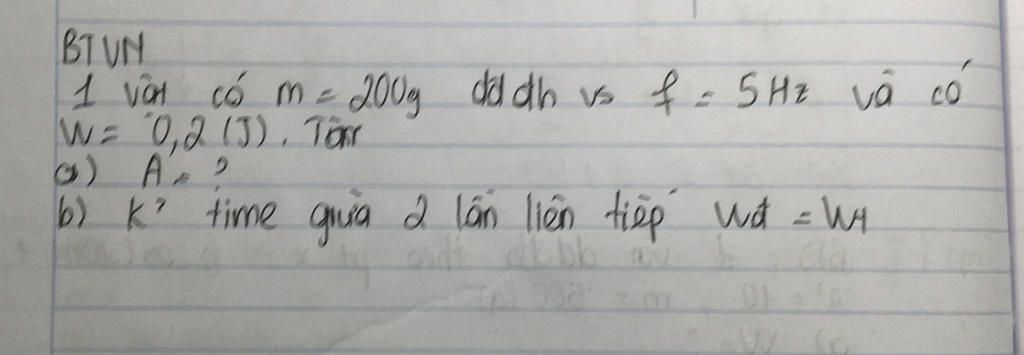 BTVN
1 vật có m = 200g dđ đh vs f = 5Hz và có
W = 0,2 (J). Tìm
a) A = ?
b) K² time giữa 2 lần liên tiếp Wđ = Wt